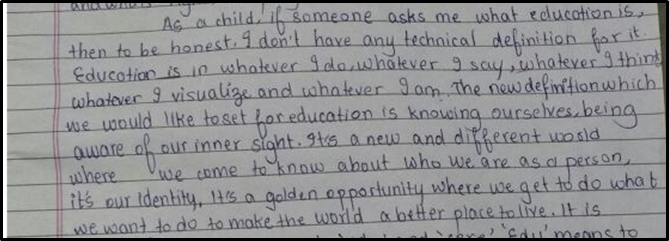 As a child, if someone asks me what education is,
then to be honest. I don't have any technical definition for it.
Education is in whatever I do, whatever I say, whatever I think
whatever I visualize and whatever I am. The new definition which
we would like to set for education is knowing ourselves, being
aware of our inner sight. It's a new and different world
where we come to know about who we are as a person,
it's our identity. It's a golden opportunity where we get to do what
we want to do to make the world a better place to live. It is
'Edu' means to